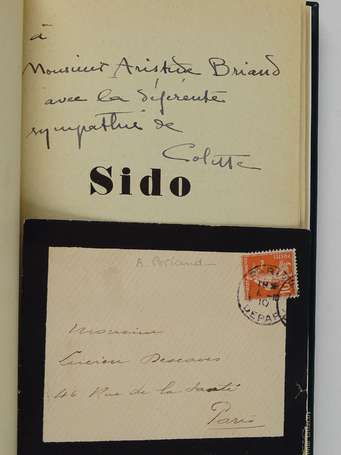 à
Monsieur Aristide Briand
avec la déférente
sympathie de
Colette
Sido
A. Briand
PARIS
10
DEPART
Monsieur
Lucien Descaves
46 Rue de la Santé
Paris